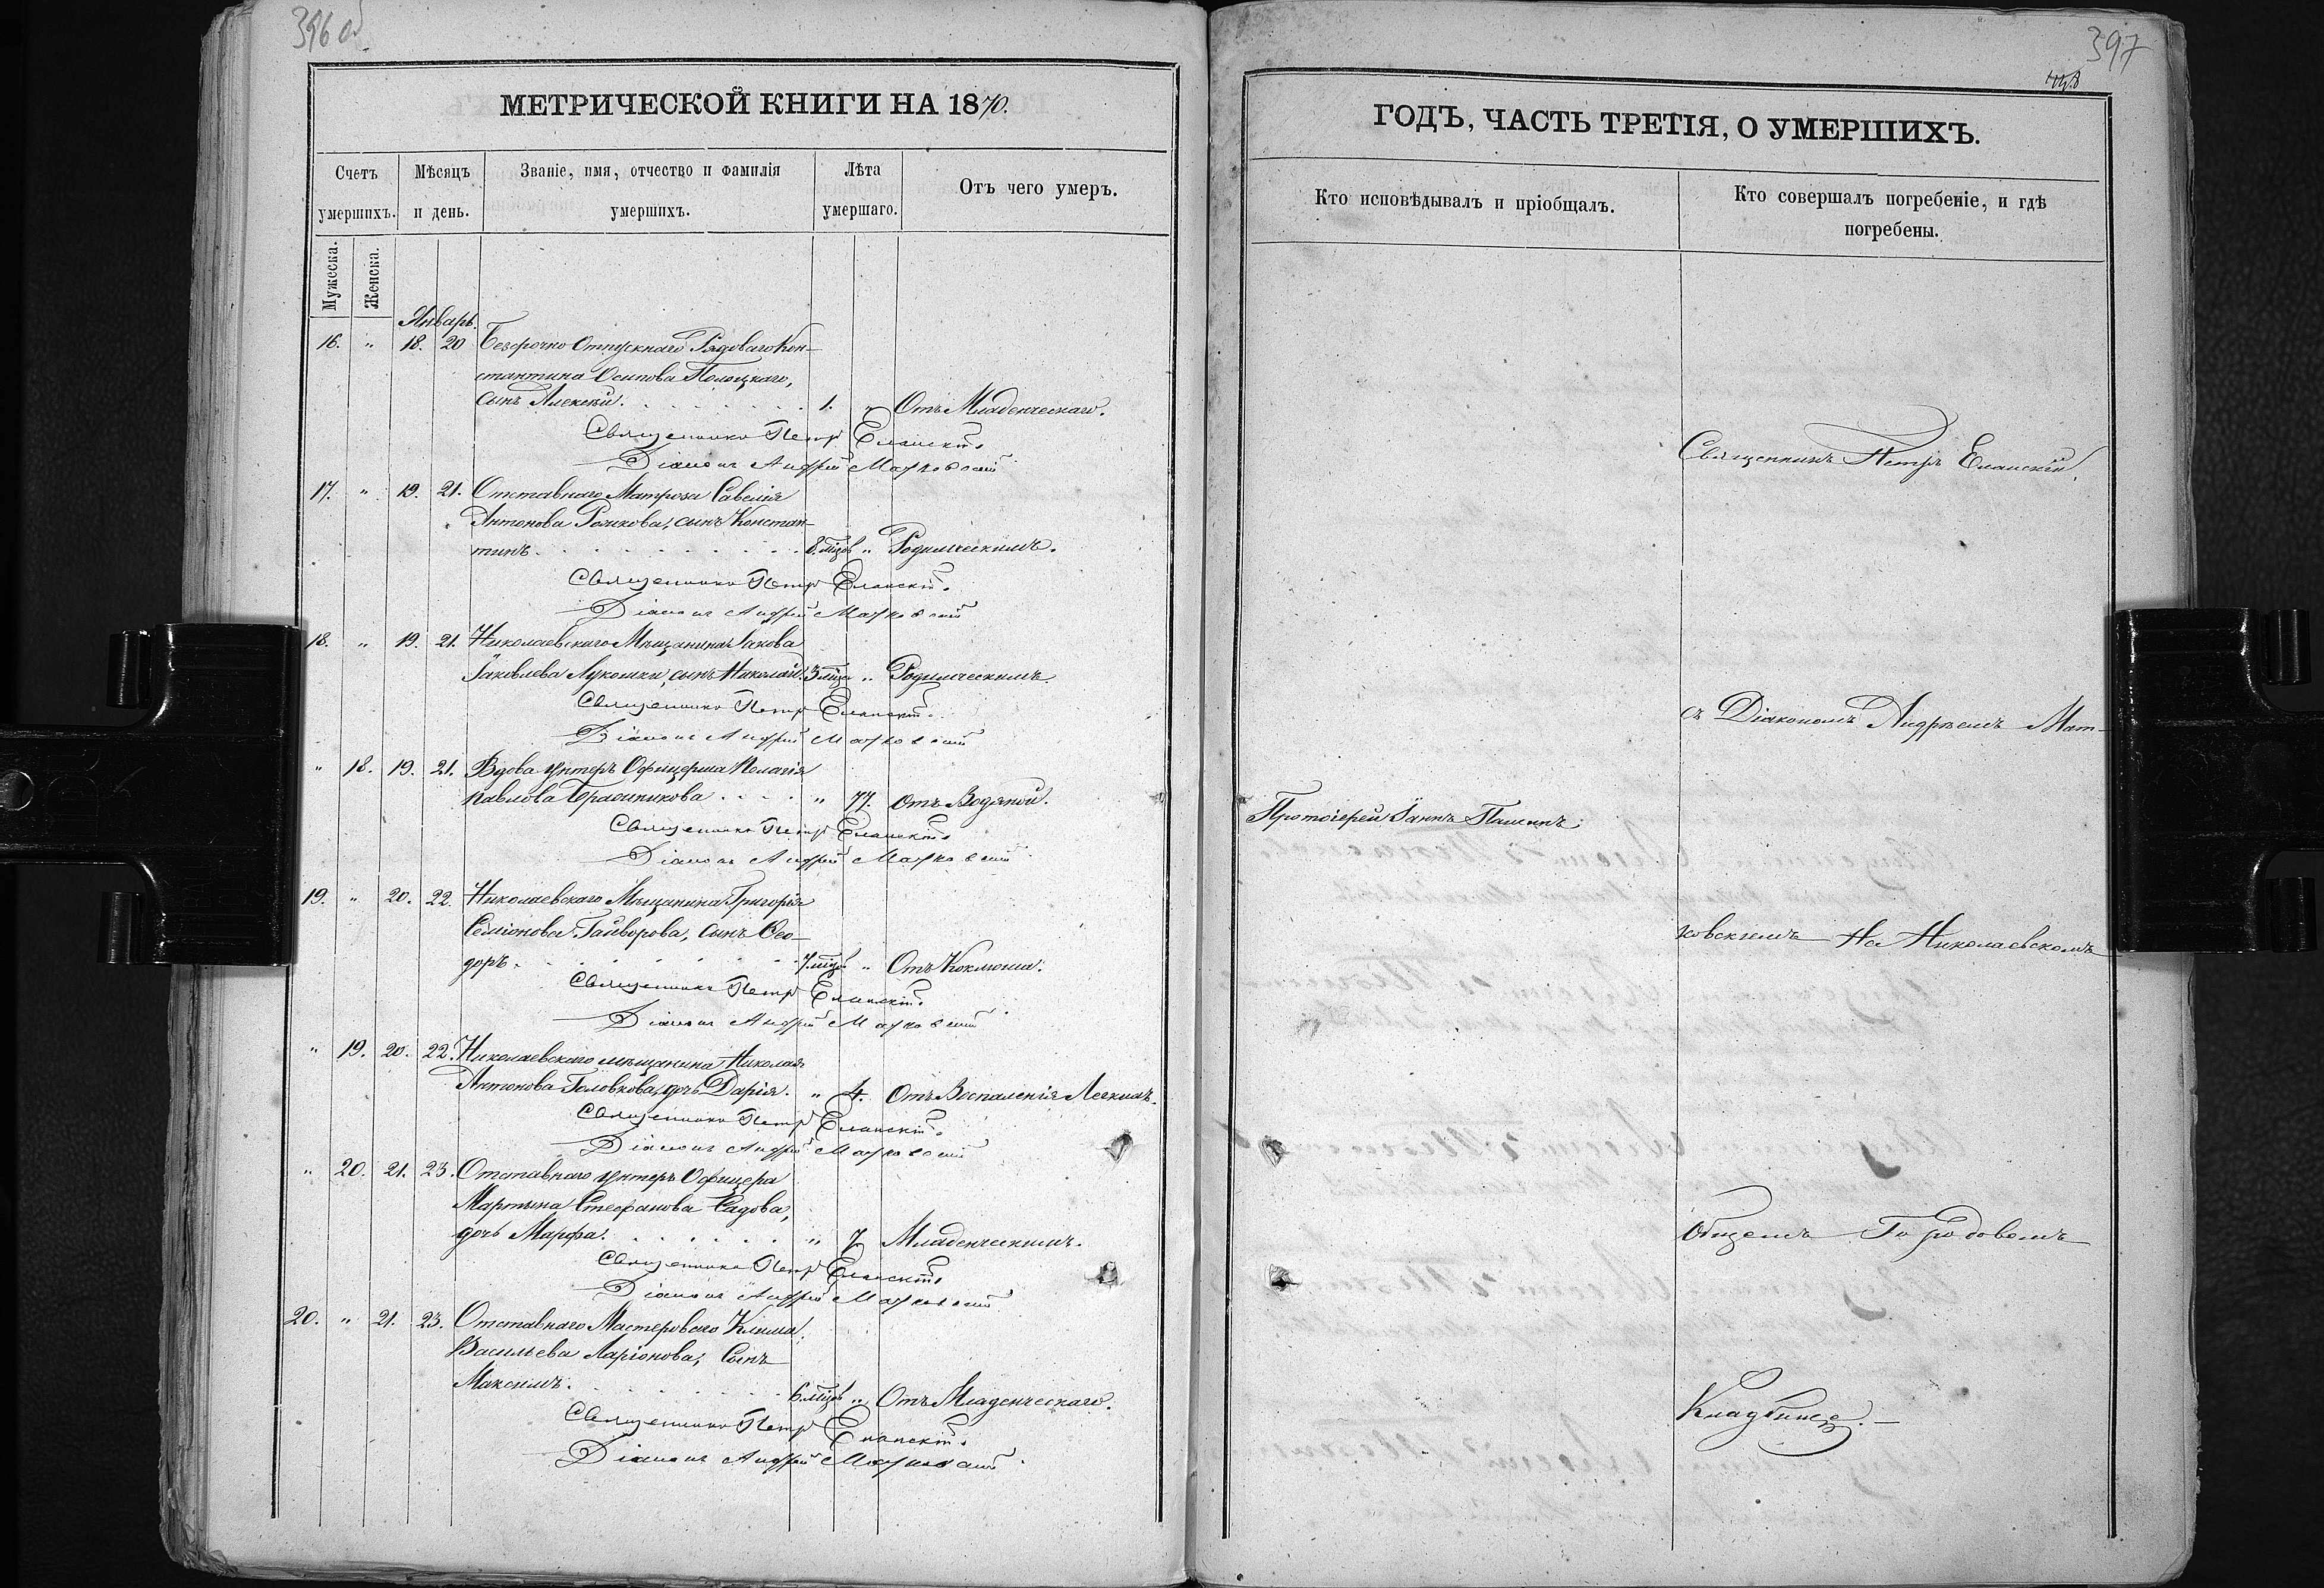 396 об
МЕТРИЧЕСКОЙ КНИГИ НА 1870.
Счетъ умершихъ.
Мѣсяцъ и день.
Званіе, имя, отчество и фамилія умершихъ.
Лѣта умершаго.
Отъ чего умеръ.
Мужеска.
Женска.
Январь.
16. " 18. 20 Безсрочно Отпускнаго Рядоваго Кон-
стантина Осипова Полоцкаго,
сынъ Алексѣй. 1. " Отъ Младенческаго.
Священникъ Петръ Еланскій.
Діаконъ Андрей Матковскій
17. " 19. 21. Отставнаго Матроса Савелія
Антонова Рожкова, сынъ Констан-
тинъ. 8. мцов " Родимческимъ.
Священникъ Петръ Еланскій.
Діаконъ Андрей Матковскій
18. " 19. 21. Николаевскаго Мѣщанина Іакова
Іаковлева Лукомки, сынъ Николай. 3 мцa " Родимческимъ.
Священникъ Петръ Еланскій.
Діаконъ Андрей Матковскій
" 18. 19. 21. Вдова унтеръ Офицерша Пелагія
Павлова " 77. отъ Водяной.
Священникъ Петръ Еланскій.
Діаконъ Андрей Матковскій
19. " 20. 22. Николаевскаго Мѣщанина Григорія
Семіонова Гайворова, сынъ Ѳео-
доръ. 7. мцов " Отъ Коклюша.
Священникъ Петръ Еланскій.
Діаконъ Андрей Матковскій
" 19. 20. 22. Николаевскаго мѣщанина Николая
Антонова Головкова, дочь Дарія. " 4. Отъ Воспаленія Легкихъ.
Священникъ Петръ Еланскій.
Діаконъ Андрей Матковскій
" 20. 21. 23. Отставнаго унтеръ Офицера
Мартына Стефанова Садова,
дочь Марфа. " 7 Младенческимъ.
Священникъ Петръ Еланскій.
Діаконъ Андрей Матковскій
20. " 21. 23. Отставнаго Мастероваго Клима
Васильева Ларіонова, Сынъ
Максимъ. 6. мцов " Отъ Младенческаго.
Священникъ Петръ Еланскій.
Діаконъ Андрей Матковскій
397
ГОДЪ, ЧАСТЬ ТРЕТІЯ, О УМЕРШИХЪ.
Кто исповѣдывалъ и пріобщалъ.
Кто совершалъ погребеніе, и гдѣ
погребены.
Священникъ Петръ Еланскій,
съ Діакономъ Андреемъ Мат-
Протоіерей Іаннъ
ковскимъ На Николаевскомъ
Общемъ Городовомъ
Кладбищѣ.